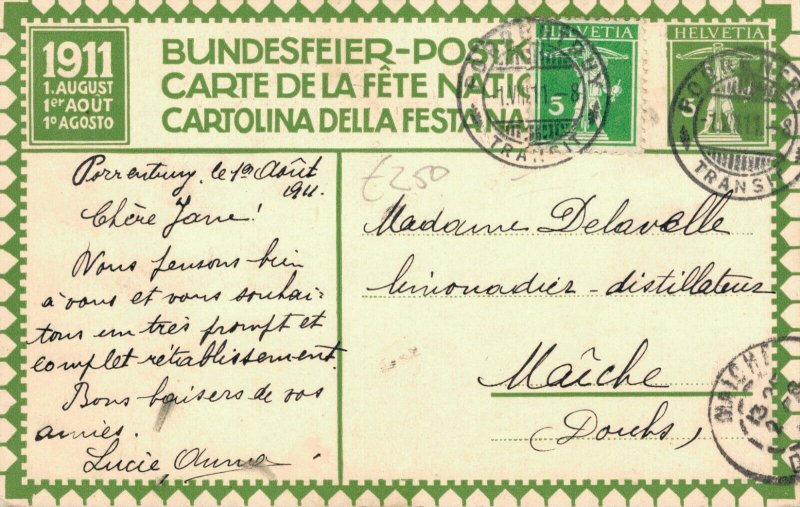 1911
1. AUGUST
1er AOUT
1º AGOSTO
BUNDESFEIER-POSTK
CARTE DE LA FÊTE NATIO
CARTOLINA DELLA FESTA NA
HELVETIA
5
HELVETIA
TRANSIT
TRANSIT
£250
Porrentruy, le 1er Août
1911.
Chère Jane!
Nous pensons bien
à vous et vous souhai-
tons un très prompt et
complet rétablissement.
Bons baisers de vos
amies.
Lucie, Anna
Madame Delavelle
limonadier - distillateur
Maîche
Doubs,
MAICHE